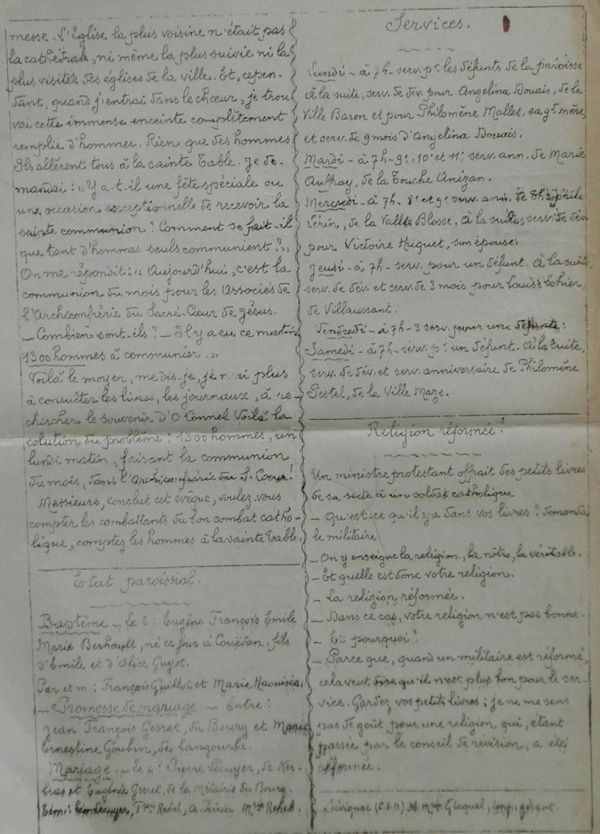 messe. L'Eglise la plus voisine n'était pas
la cathédrale, ni même la plus suivie ni la
plus visitée des églises de la ville. Et, cepen-
dant, quand j'entrai dans le chœur, je trou
vai cette immense enceinte complètement
remplie d'hommes. Rien que des hommes
Ils allèrent tous à la sainte Table. Je de-
mandai : "Y a-t-il une fête spéciale ou
une occasion exceptionnelle de recevoir la
sainte communion ? Comment se fait-il
que tant d'hommes seuls communient ?"
On me répondit : "Aujourd'hui, c'est la
communion du mois pour les Associés de
l'Archiconfrérie du Sacré-Cœur de Jésus.
- Combien sont-ils ? - Il y a eu ce matin
1300 hommes à communier."
Voilà le moyen, me dis-je, je n'ai plus
à consulter les livres, les journaux, à re-
chercher le souvenir d'O'Connel. Voilà la
solution du problème ! 1300 hommes, un
lundi matin, faisant la communion
du mois, dans l'Archiconfrérie du S. Cœur !
Messieurs, conclut cet évêque, voulez vous
compter les combattants du bon combat catho-
lique, comptez les hommes à la sainte Table.
Etat paroissial.
Baptême - le 2: Eugène François Emile
Marie Berhault, né ce jour à fils
d'Emile et d'Alice Guyot.
Par et m : François Guillot, et Marie
Promesse de mariage - Entre :
Jean François Gesret, du Bourg et Marie
Ernestine Goubin, de Langourla.
Mariage - le 4: Pierre Lécuyer, de Ker-
bras et Eugénie Gesret, de la Métairie du Bourg
Services.
Lundi - à 7h - serv. pr les défunts de la paroisse
à la suite, serv. de dév. pour Angelina Douais, de la
Ville Baron et pour Philomène Mallet, sa gd mère,
et serv. de 9 mois d'Angelina Douais.
Mardi - à 7h - 9e. 10e et 11e serv. ann. de Marie
Auffray, de la Touche Anizan.
Mercredi - à 7h. 8e et 9e serv. ann. de Théophile
de la Vallée Blosse. à la suite, serv. de dév.
pour Victoire Huguet, son épouse.
Jeudi - à 7h - serv. pour un défunt. à la suite,
serv. de dév. et serv. de 3 mois pour Louise
de Villaussant.
Vendredi - à 7h - 3 serv. pour une défunte.
Samedi - à 7h - serv. pr un défunt. à la suite,
serv. de dév. et serv. anniversaire de Philomène
Sestel, de la Ville Maze.
Religion réformée !
Un ministre protestant offrait des petits livres
de sa secte à un soldat catholique
- Qu'est-ce qu'il y a dans vos livres ? demanda
le militaire
- On y enseigne la religion, la nôtre, la véritable.
- Et quelle est donc votre religion.
- La religion réformée.
- Dans ce cas, votre religion n'est pas bonne.
- Et pourquoi ?
- Parce que, quand un militaire est réformé,
cela veut dire qu'il n'est plus bon pour le ser-
vice. Gardez vos petits livres ; je ne me sens
pas de goût pour une religion qui, étant
passée par le conseil de révision, a été
réformée.
Sévignac (C.d.N) Gicquel, imp. gérant.